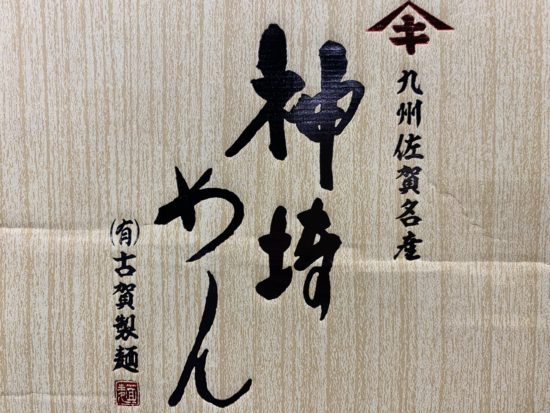 キ
九州佐賀名産
神埼
めん
㈲古賀製麺